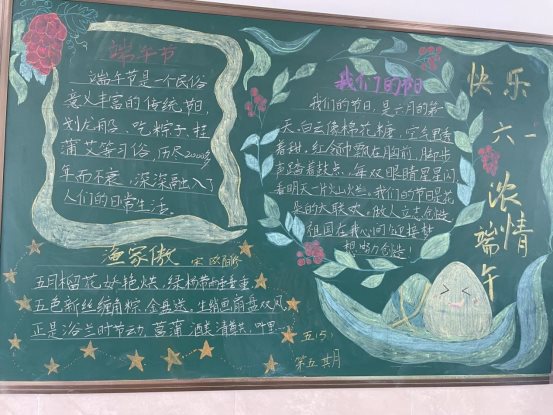 端午节
端午节是一个民俗
意义丰富的传统节日
划龙船、吃粽子、挂
蒲艾等习俗,历尽2000多
年而不衰,深深融入了
人们的日常生活。
渔家傲
宋 欧阳修
五月榴花妖艳烘,绿杨带雨垂垂重
五色新丝缠角粽,金盘送,生绡画扇盘双凤
正是浴兰时节动,菖蒲酒美清尊共,叶里
我们的节日
我们的节日,是六月的第一
天,白云像棉花糖,空气里透
着甜,红领巾飘在胸前,脚步
声踏着鼓点,每双眼睛里星闪
着明天一片灿烂,我们的节日是花
朵的大联欢,做人立志创造
祖国在我心间,迎接梦
想努力创造!
快乐
六一
浓情
端午
五(5)
第五期